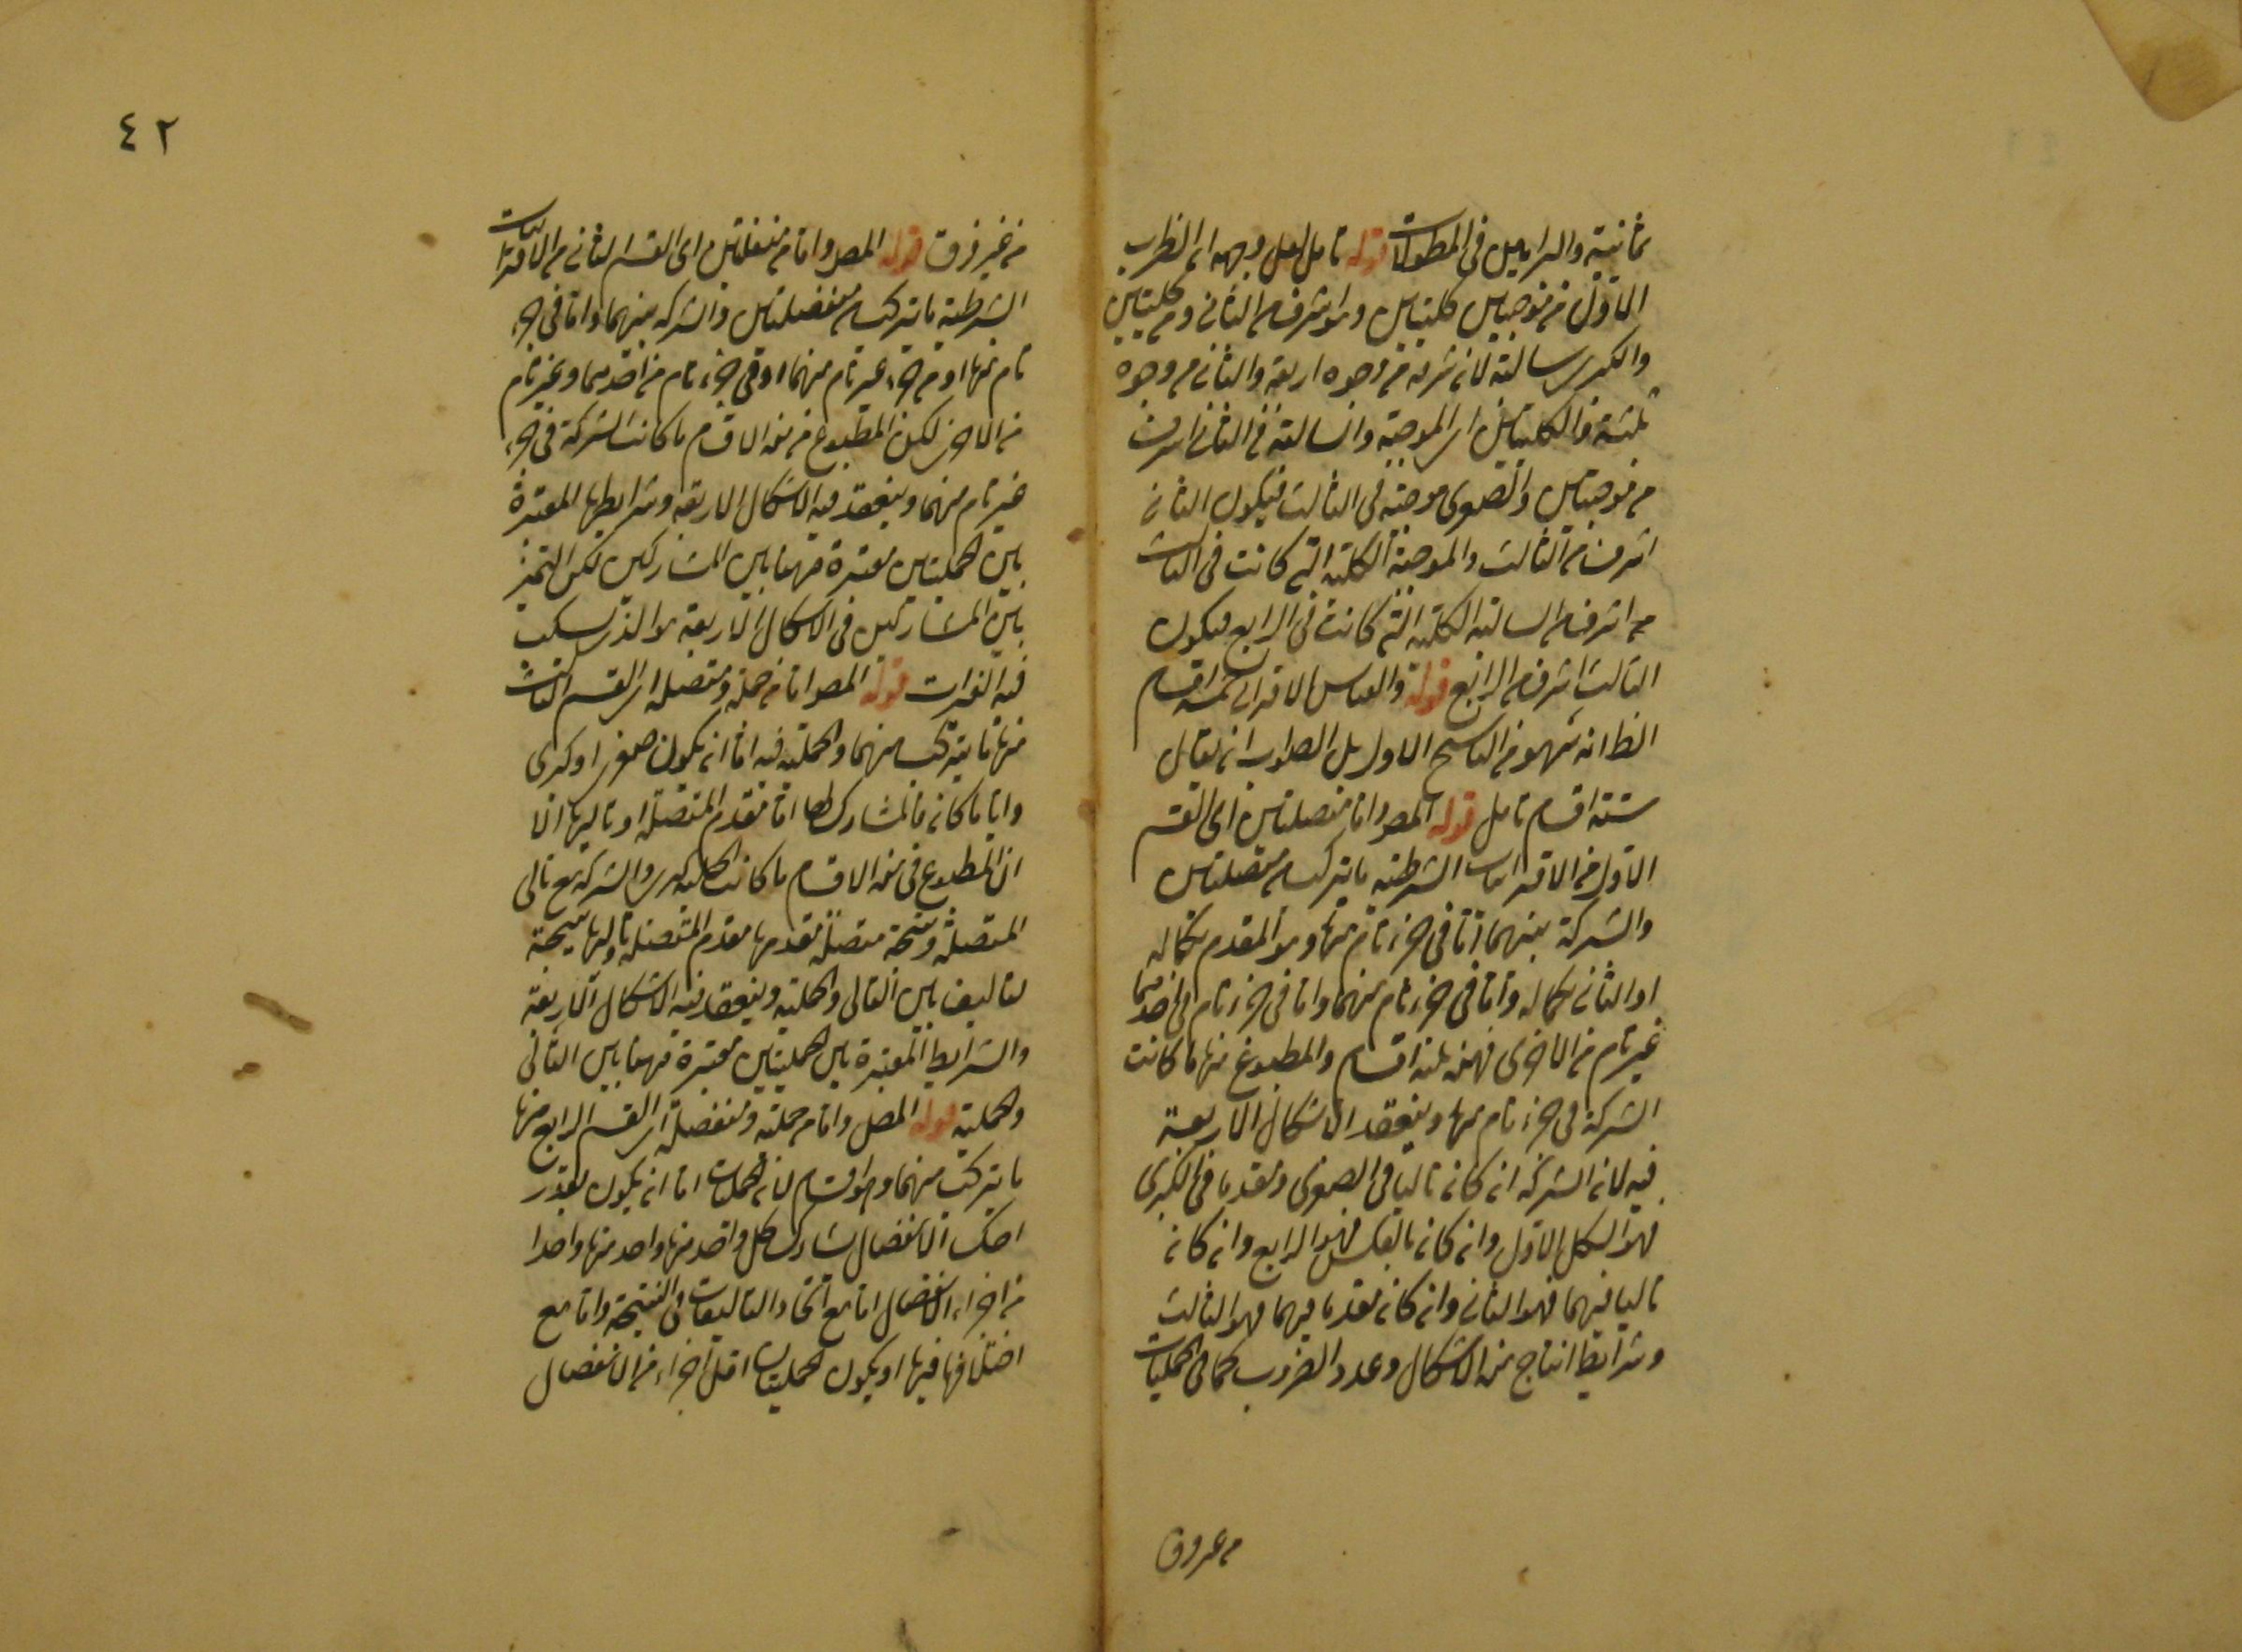 ثمانية والبراهين فى المطولات قوله تامل لعل وجهه ان الضرب
الاول من موجبتين كليتين وهو اشرف من الثانى ومن كليتين
والكبرى سالبة لانه شرفه من وجوه اربعة والثانى من وجوه
ثلثة والكليتين اى الموجبة والسالبة فى الثانى اشرف
من موجبتين والصغرى موجبة فى الثالث فيكون الثانى
اشرف من الثالث والموجبة الكلية التى كانت فى الثالث
من اشرف من السالبة الكلية التى كانت فى الرابع فيكون
الثالث اشرف من الرابع قوله والقياس الاقترانى خمسة اقسام
الظ انه سهو من الناسخ الاول بل الصواب ان يقال
ستة اقسام تامل قوله المص واما متصلتين اى القسم
الاول من الاقترانيات الشرطية ما يتركب من متصلتين
والشركة بينهما اما فى جزء تام منهما وهو المقدم بكماله
او التالى بكماله واما فى جزء تام منهما واما فى جزء تام من احدهما
غير تام من الاخرى فهذه ثلثة اقسام والمطبوع منها ما كانت
الشركة فى جزء تام منهما وينعقد الاشكال الاربعة
فيه لانه الشركة ان كان تاليا فى الصغرى ومقدما فى الكبرى
فهو الشكل الاول وان كان بالعكس فهو الرابع وان كان
تاليا فيهما فهو الثانى وان كان مقدما فيهما فهو الثالث
وشرايط انتاج هذه الاشكال وعدد الضروب كما فى الحمليات
من غير فرق
٤٢
من غير فرق قوله المص واما من منفصلتين اى القسم الثانى من الاقترانيات
الشرطية ما يتركب من منفصلتين والشركة بينهما اما فى جزء
تام منهما او من جزء غير تام منهما او فى جزء تام من احديهما وغير تام
من الاخرى لكن المطبوع من هذه الاقسام ما كانت الشركة فى جزء
غير تام منهما وينعقد فيه الاشكال الاربعة وشرايطها المعتبرة
بين الحمليتين معتبرة فيهما بين المتشاركين لكن التميز
بين المتشاركين فى الاشكال الاربعة هو الذى
قوله المص اما من حملية ومتصلة اى القسم الثالث
منها ما يتركب منهما والحملية فيه اما ان يكون صغرى او كبرى
واياما كان فالمشارك لها اما مقدم المتصلة او تاليها الا
ان المطبوع فى هذه الاقسام ما كانت الحملية كبرى والشركة مع تالى
المتصلة ونتيجته متصلة مقدمها مقدم المتصلة وتاليها نتيجة
تاليف بين التالى والحملية وينعقد فيه الاشكال الاربعة
والشرايط المعتبرة بين الحمليتين معتبرة فيهما بين التالى
والحملية قوله المص واما من حملية ومنفصلة اى القسم الرابع منها
ما يتركب منهما وهو اقسام لانه الحمليات اما ان يكون بقدر
الانفصال يشارك كل واحد منها واحد منها واحدا
من اجزاء الانفصال اما مع اتحاد التاليفات فى النتيجة واما مع
اختلافها فيها او يكون الحمليات اقل اجزاء من الانفصال